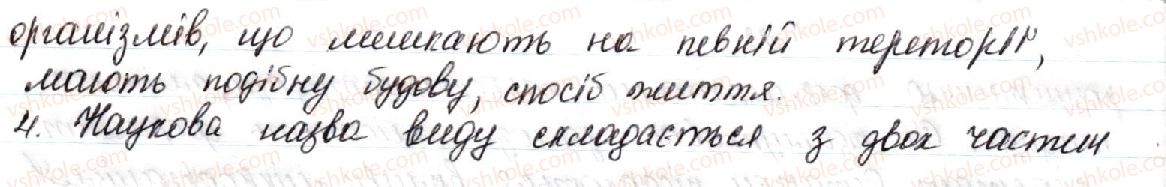 організмів, що мешкають на певній тереторії,
мають подібну будову, спосіб життя.
4. Наукова назва виду складається з двох частин